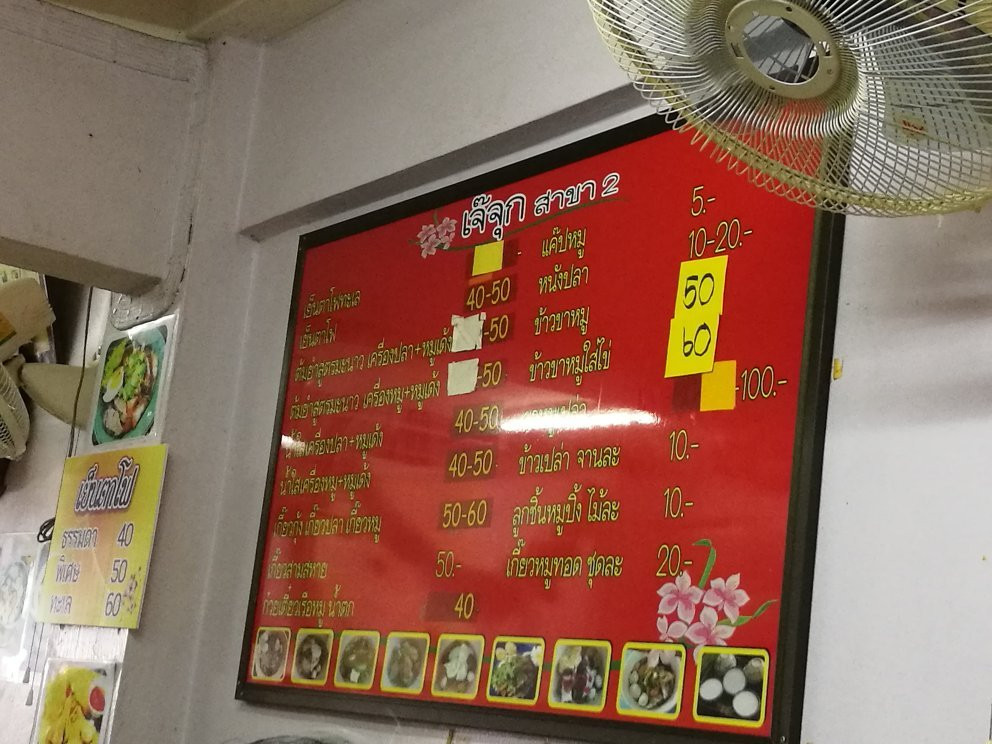 เจ๊จุก สาขา 2
เย็นตาโฟทะเล
เย็นตาโฟ 40-50
ต้มยำสูตรมะนาว เครื่องปลา+หมูเด้ง -50
ต้มยำสูตรมะนาว เครื่องหมู+หมูเด้ง -50
น้ำใสเครื่องปลา+หมูเด้ง 40-50
น้ำใสเครื่องหมู+หมูเด้ง 40-50
เกี๊ยวกุ้ง เกี๊ยวปลา เกี๊ยวหมู 50-60
เกี๊ยวสามสหาย 50.-
ก๋วยเตี๋ยวเรือหมู น้ำตก 40
แค๊ปหมู 5.-
หนังปลา 10-20.-
ข้าวขาหมู 50
ข้าวขาหมูใส่ไข่ 60
-100.-
ข้าวเปล่า จานละ 10.-
ลูกชิ้นหมูปิ้ง ไม้ละ 10.-
เกี๊ยวหมูทอด ชุดละ 20.-
เย็นตาโฟ
ธรรมดา 40
พิเศษ 50
ทะเล 60